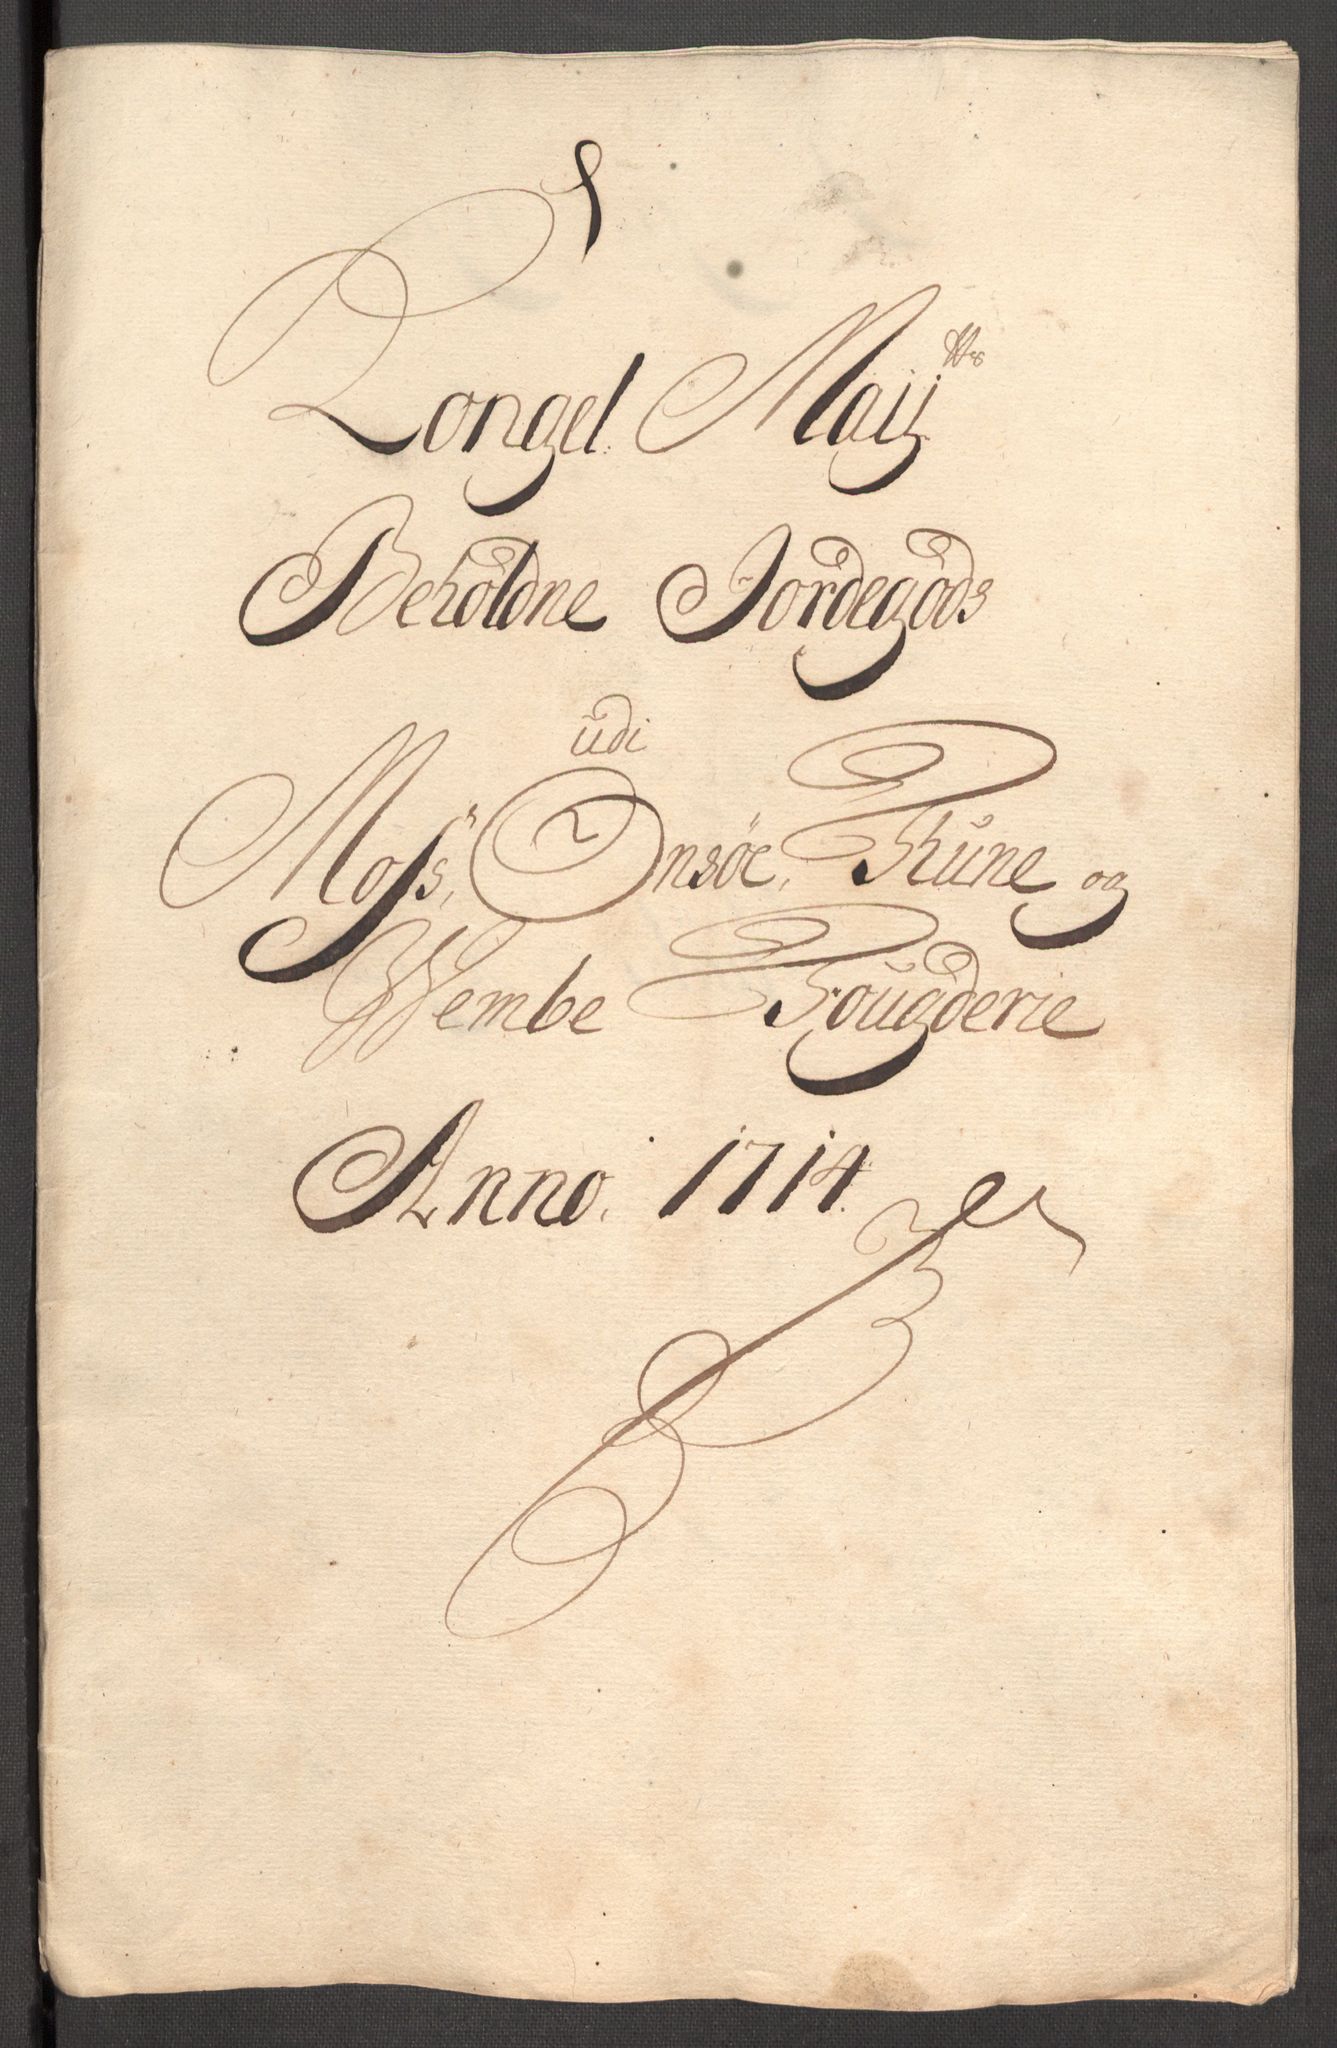 Kongel. Maij<sup>tts</sup>
Beholdne Jordegods
udi
Moss, Onsøe, Thune og
Wembe Fougderie
Anno. 1714.